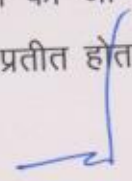 प्रतीत होत